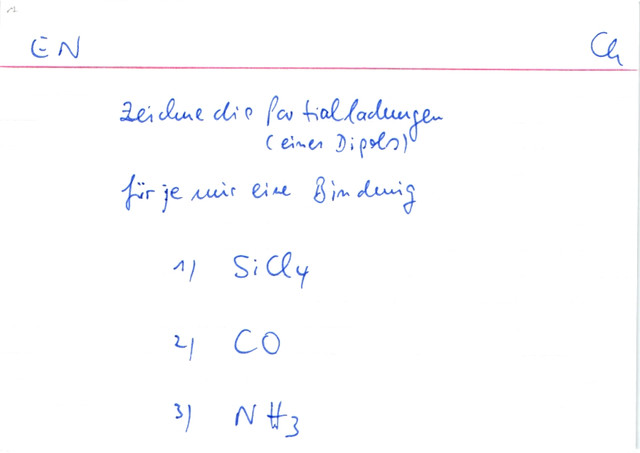 EN
Ch
Zeichne die Partialladungen
(eines Dipols)
für je nur eine Bindung
1) SiCl4
2) CO
3) NH3